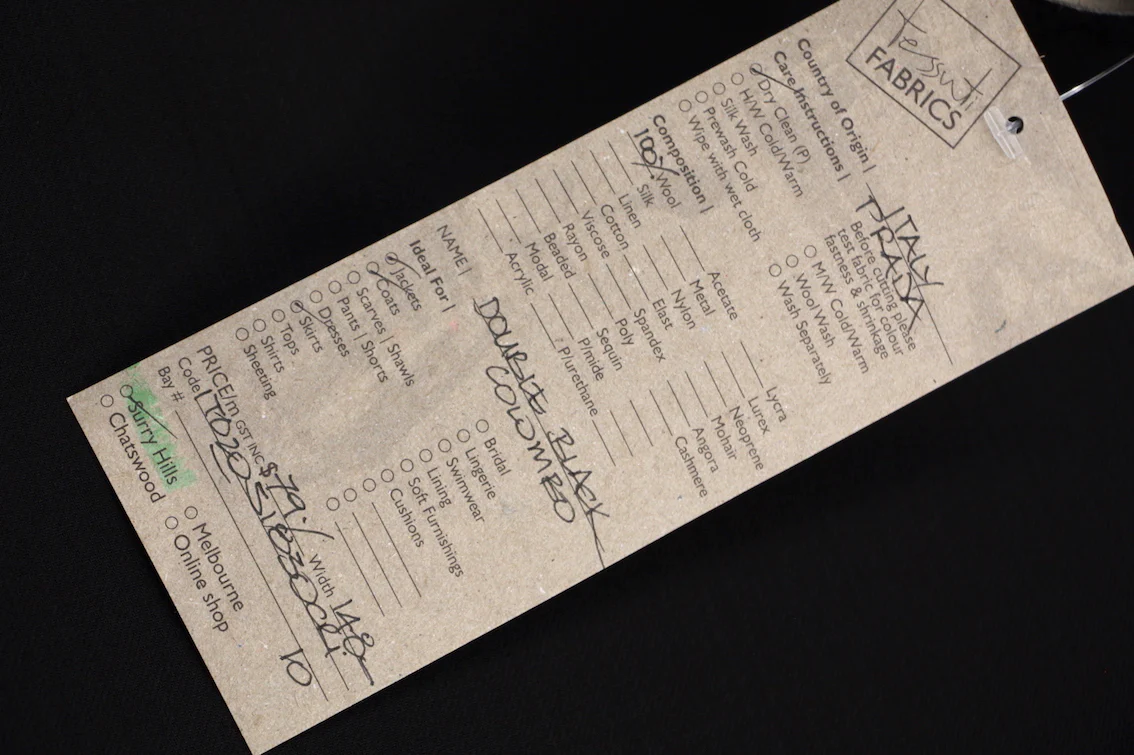 Tessuti
FABRICS
Country of Origin | ITALY
Care Instructions |
Dry Clean (P)
H/W Cold/Warm
Silk Wash
Prewash Cold
Wipe with wet cloth
Before cutting please
test fabric for colour
fastness & shrinkage
M/W Cold/Warm
Wool Wash
Wash Separately
Composition |
100% Wool
Silk
Linen
Cotton
Viscose
Rayon
Beaded
Modal
Acrylic
Acetate
Metal
Nylon
Elast
Spandex
Poly
Sequin
P/mide
P/urethane
Lycra
Lurex
Neoprene
Mohair
Angora
Cashmere
NAME | DOUBLE BLACK
COLOMBO
Ideal For |
Jackets
Coats
Scarves | Shawls
Pants | Shorts
Dresses
Skirts
Tops
Shirts
Sheeting
Bridal
Lingerie
Swimwear
Lining
Soft Furnishings
Cushions
PRICE/m GST INC $79. Width 148
Code
Bay # 10
Surry Hills
Chatswood
Melbourne
Online shop